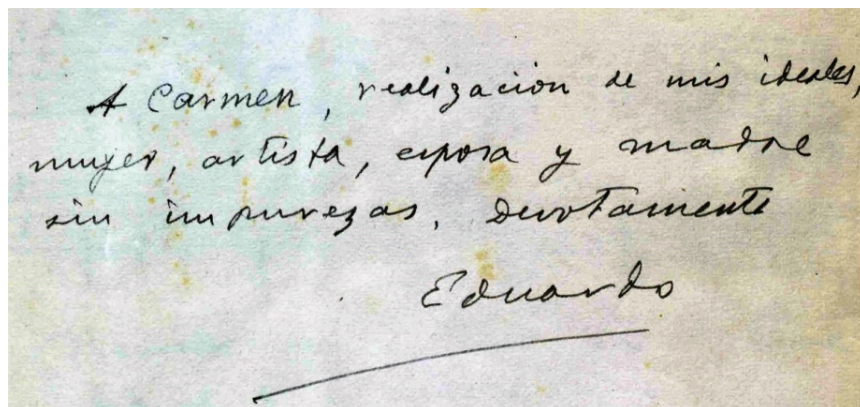 A Carmen, realizacion de mis ideales,
mujer, artista, esposa y madre
sin impurezas, devotamente
Eduardo